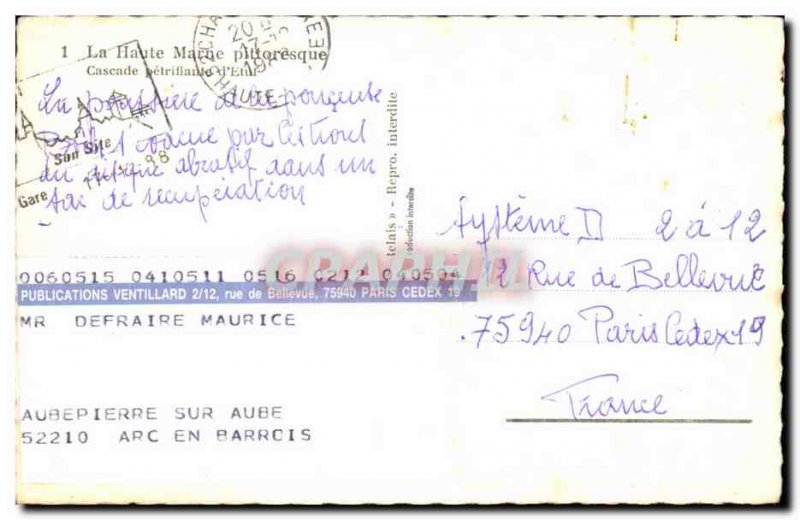 1 La Haute Marne pittoresque
Cascade pétrifiante d'Etuf
20
HAUTE
Son Site
Gare
La poussière de la ponçeuse
est évacuée par
du disque abrasif dans un
sac de récupération
relais » - Repro. interdite
Système D 2 à 12
12 Rue de Bellevue
75940 Paris Cedex 19
France
CPARAMA
0060515 0410511 0516 0212 040504
PUBLICATIONS VENTILLARD 2/12, rue de Bellevue, 75940 PARIS CEDEX 19
MR DEFRAIRE MAURICE
AUBEPIERRE SUR AUBE
52210 ARC EN BARROIS